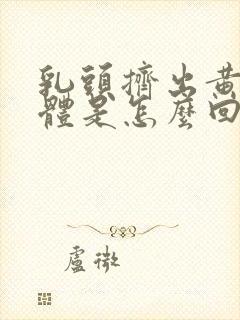 乳頭擠出黃
體是怎麼回
虛微